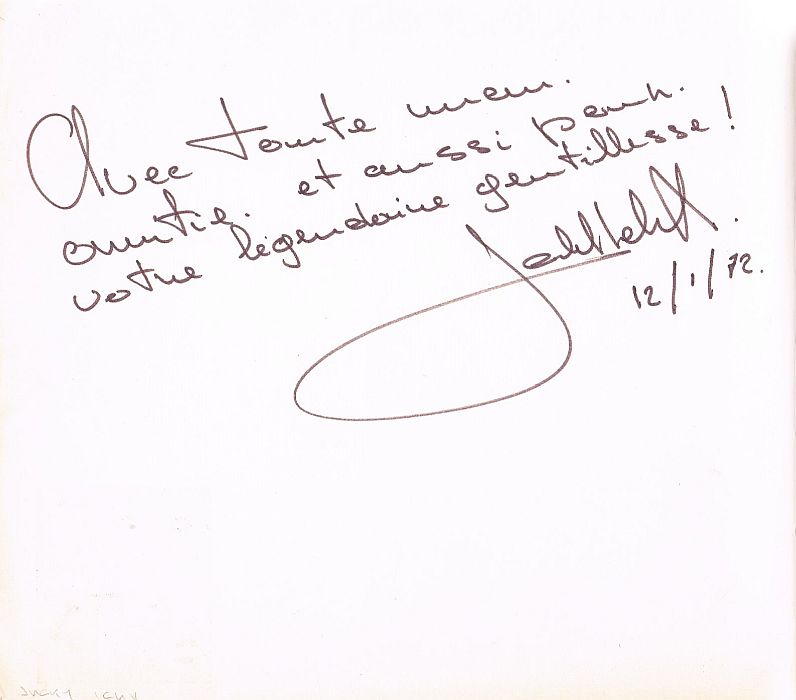 Avec toute mon
amitié. et aussi pour.
votre légendaire gentillesse !
12/1/72.
JACKY ICKX